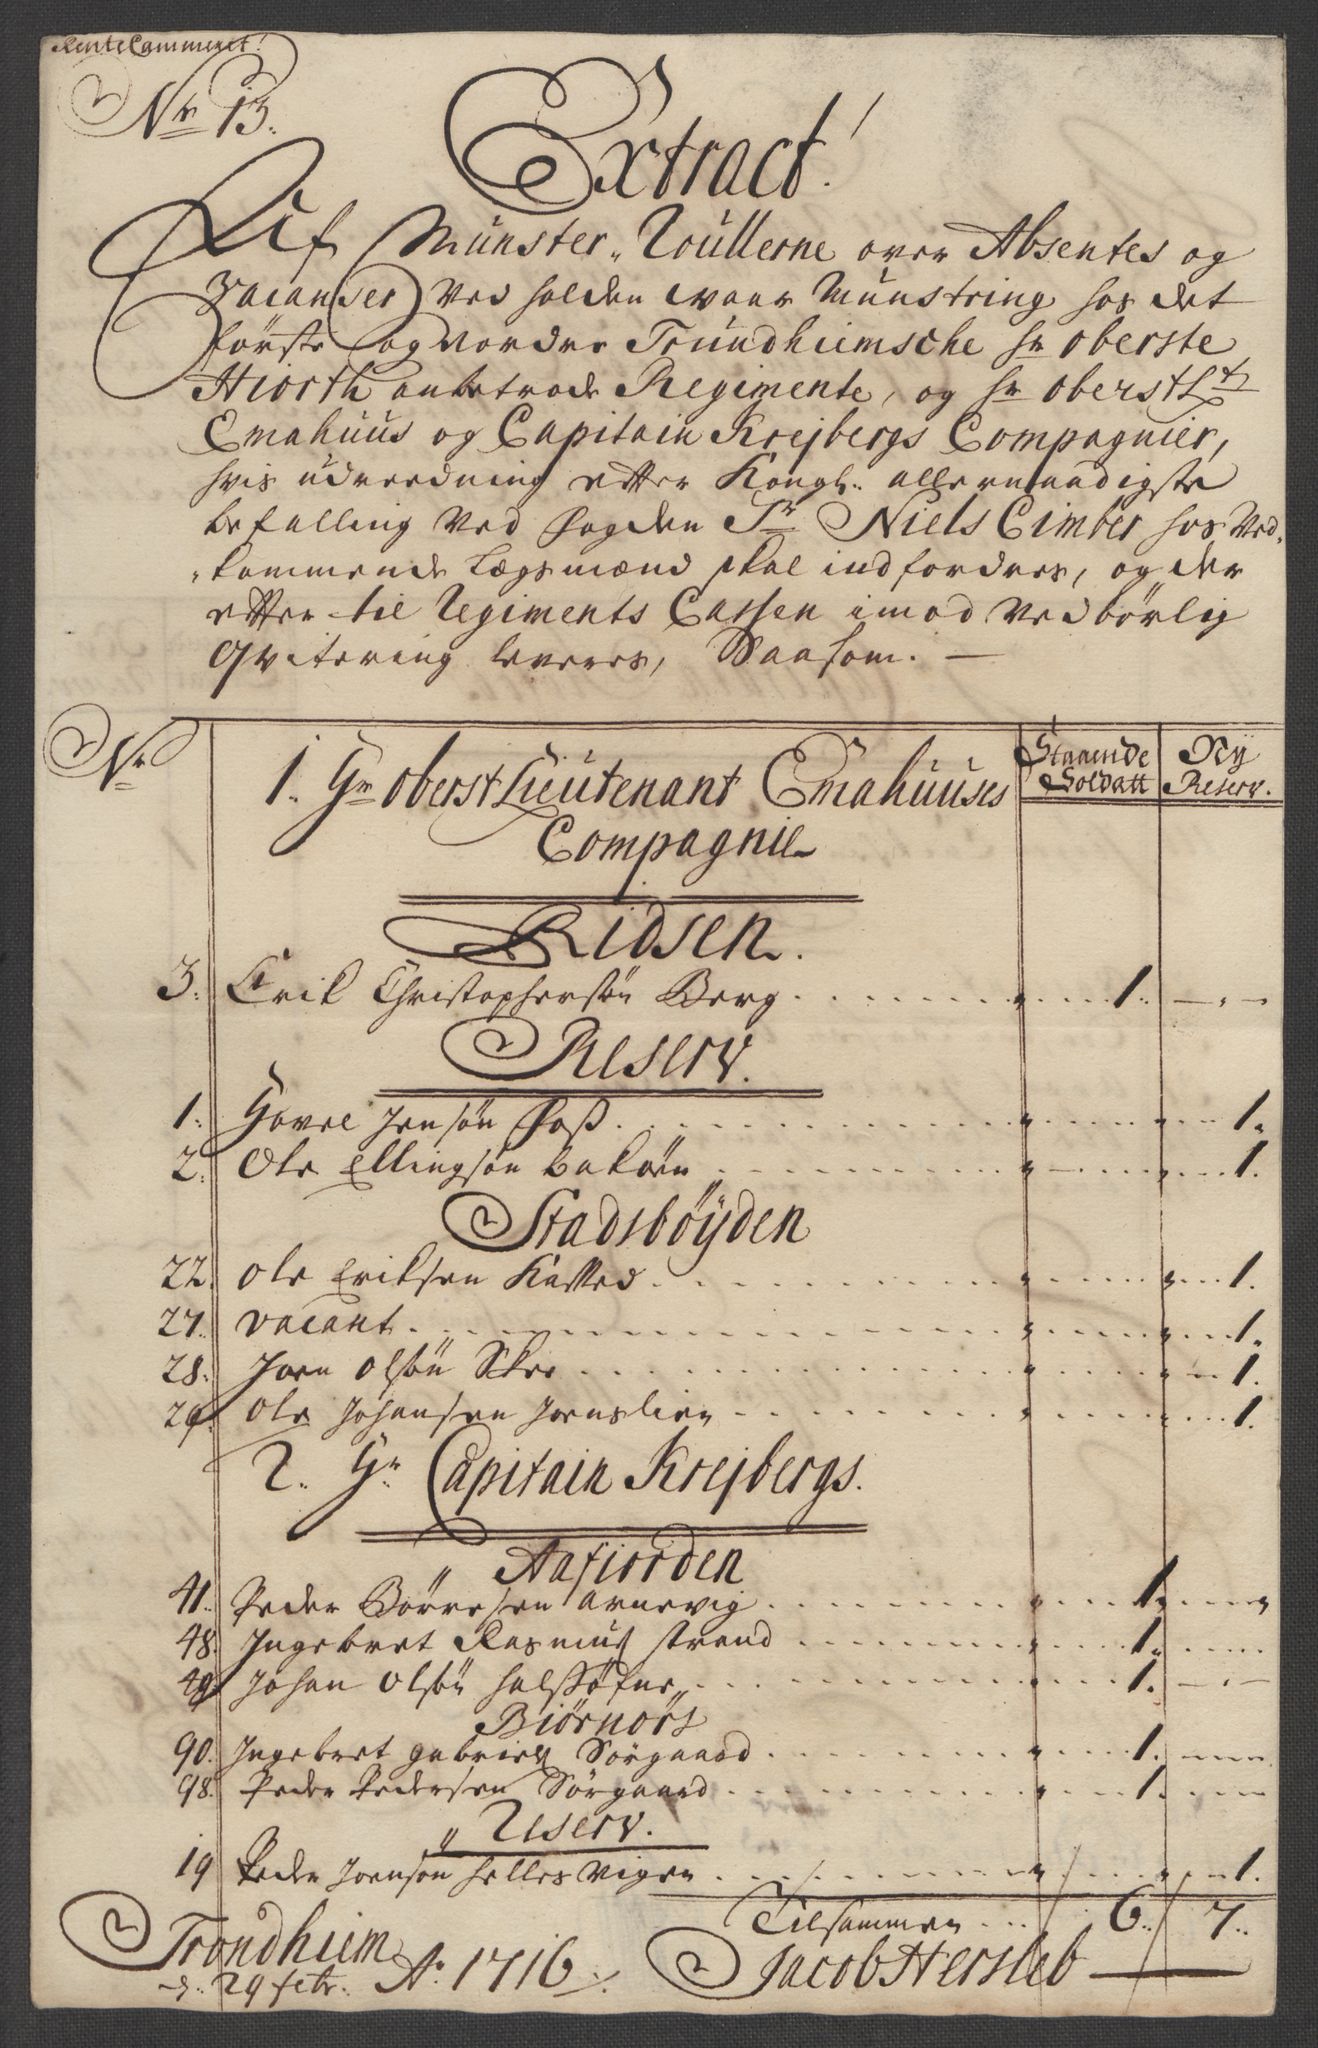 RenteCammeret!
Nr 13.
Extract!
Af Munster-Roullerne over Absentes og
Vacanser ved holden waar Munstring hos det
första og nordre Trundhiemsche Hr Oberste
Hiorth anbetrode Regimente, og Hr OberstLt
Emahuus og Capitain Krejbergs Compagnier,
hvis udreedning etter Kongl. allernaadigste
befalling ved fogden Sr Niels Cimber hos ved-
kommende Lægsmænd skal indfordres, og der
etter til Regiments Cassen imod vedbörlig
qvitering leveres, Saasom. —
Nr
1. Hr Oberst Lieutenant Emahuuses
Compagnie
Staaende Soldatt
Ny Reserv.
Ridsen.
3. Erik Christophersön Berg . . . 1. — . —
Reserv.
1. Havel Jensön Foss . . . 1.
2. Ole Ellingsön bakön . . . 1.
Stadsböyden
22. Ole Eriksen Katted . . . 1.
27. vacant . . . 1.
28. Joen Olsön Skei . . . 1.
29. Ole Johansen Joenslien . . . 1.
2. Hr Capitain Krejbergs.
Aafiorden
41. Peder Börresen arnevig . . . 1.
48. Ingebret Rasmus strand . . . 1.
49. Johan Olsön . . . 1.
Biörnörs
90. Ingebret gabriels Sörgaard . . . 1.
98. Peder Pedersen Sörgaard . . . 1.
Reserv.
19 Peder Joensön hellesvigen . . . 1.
Tilsammen . . . 6. / 7.
Trondhiem
d. 29 febr. Ao 1716.
Jacob Hersleb